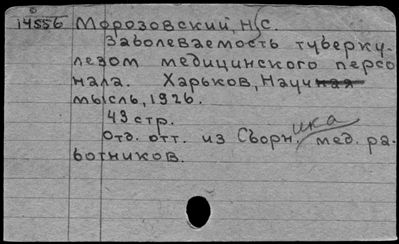 14556 Морозовский, Н. С.
Заболеваемость туберку-
лезом медицинского персо
нала. Харьков, Научная
мысль, 1926.
49 стр.
Отд. отт. из Сборника мед. ра-
ботников.